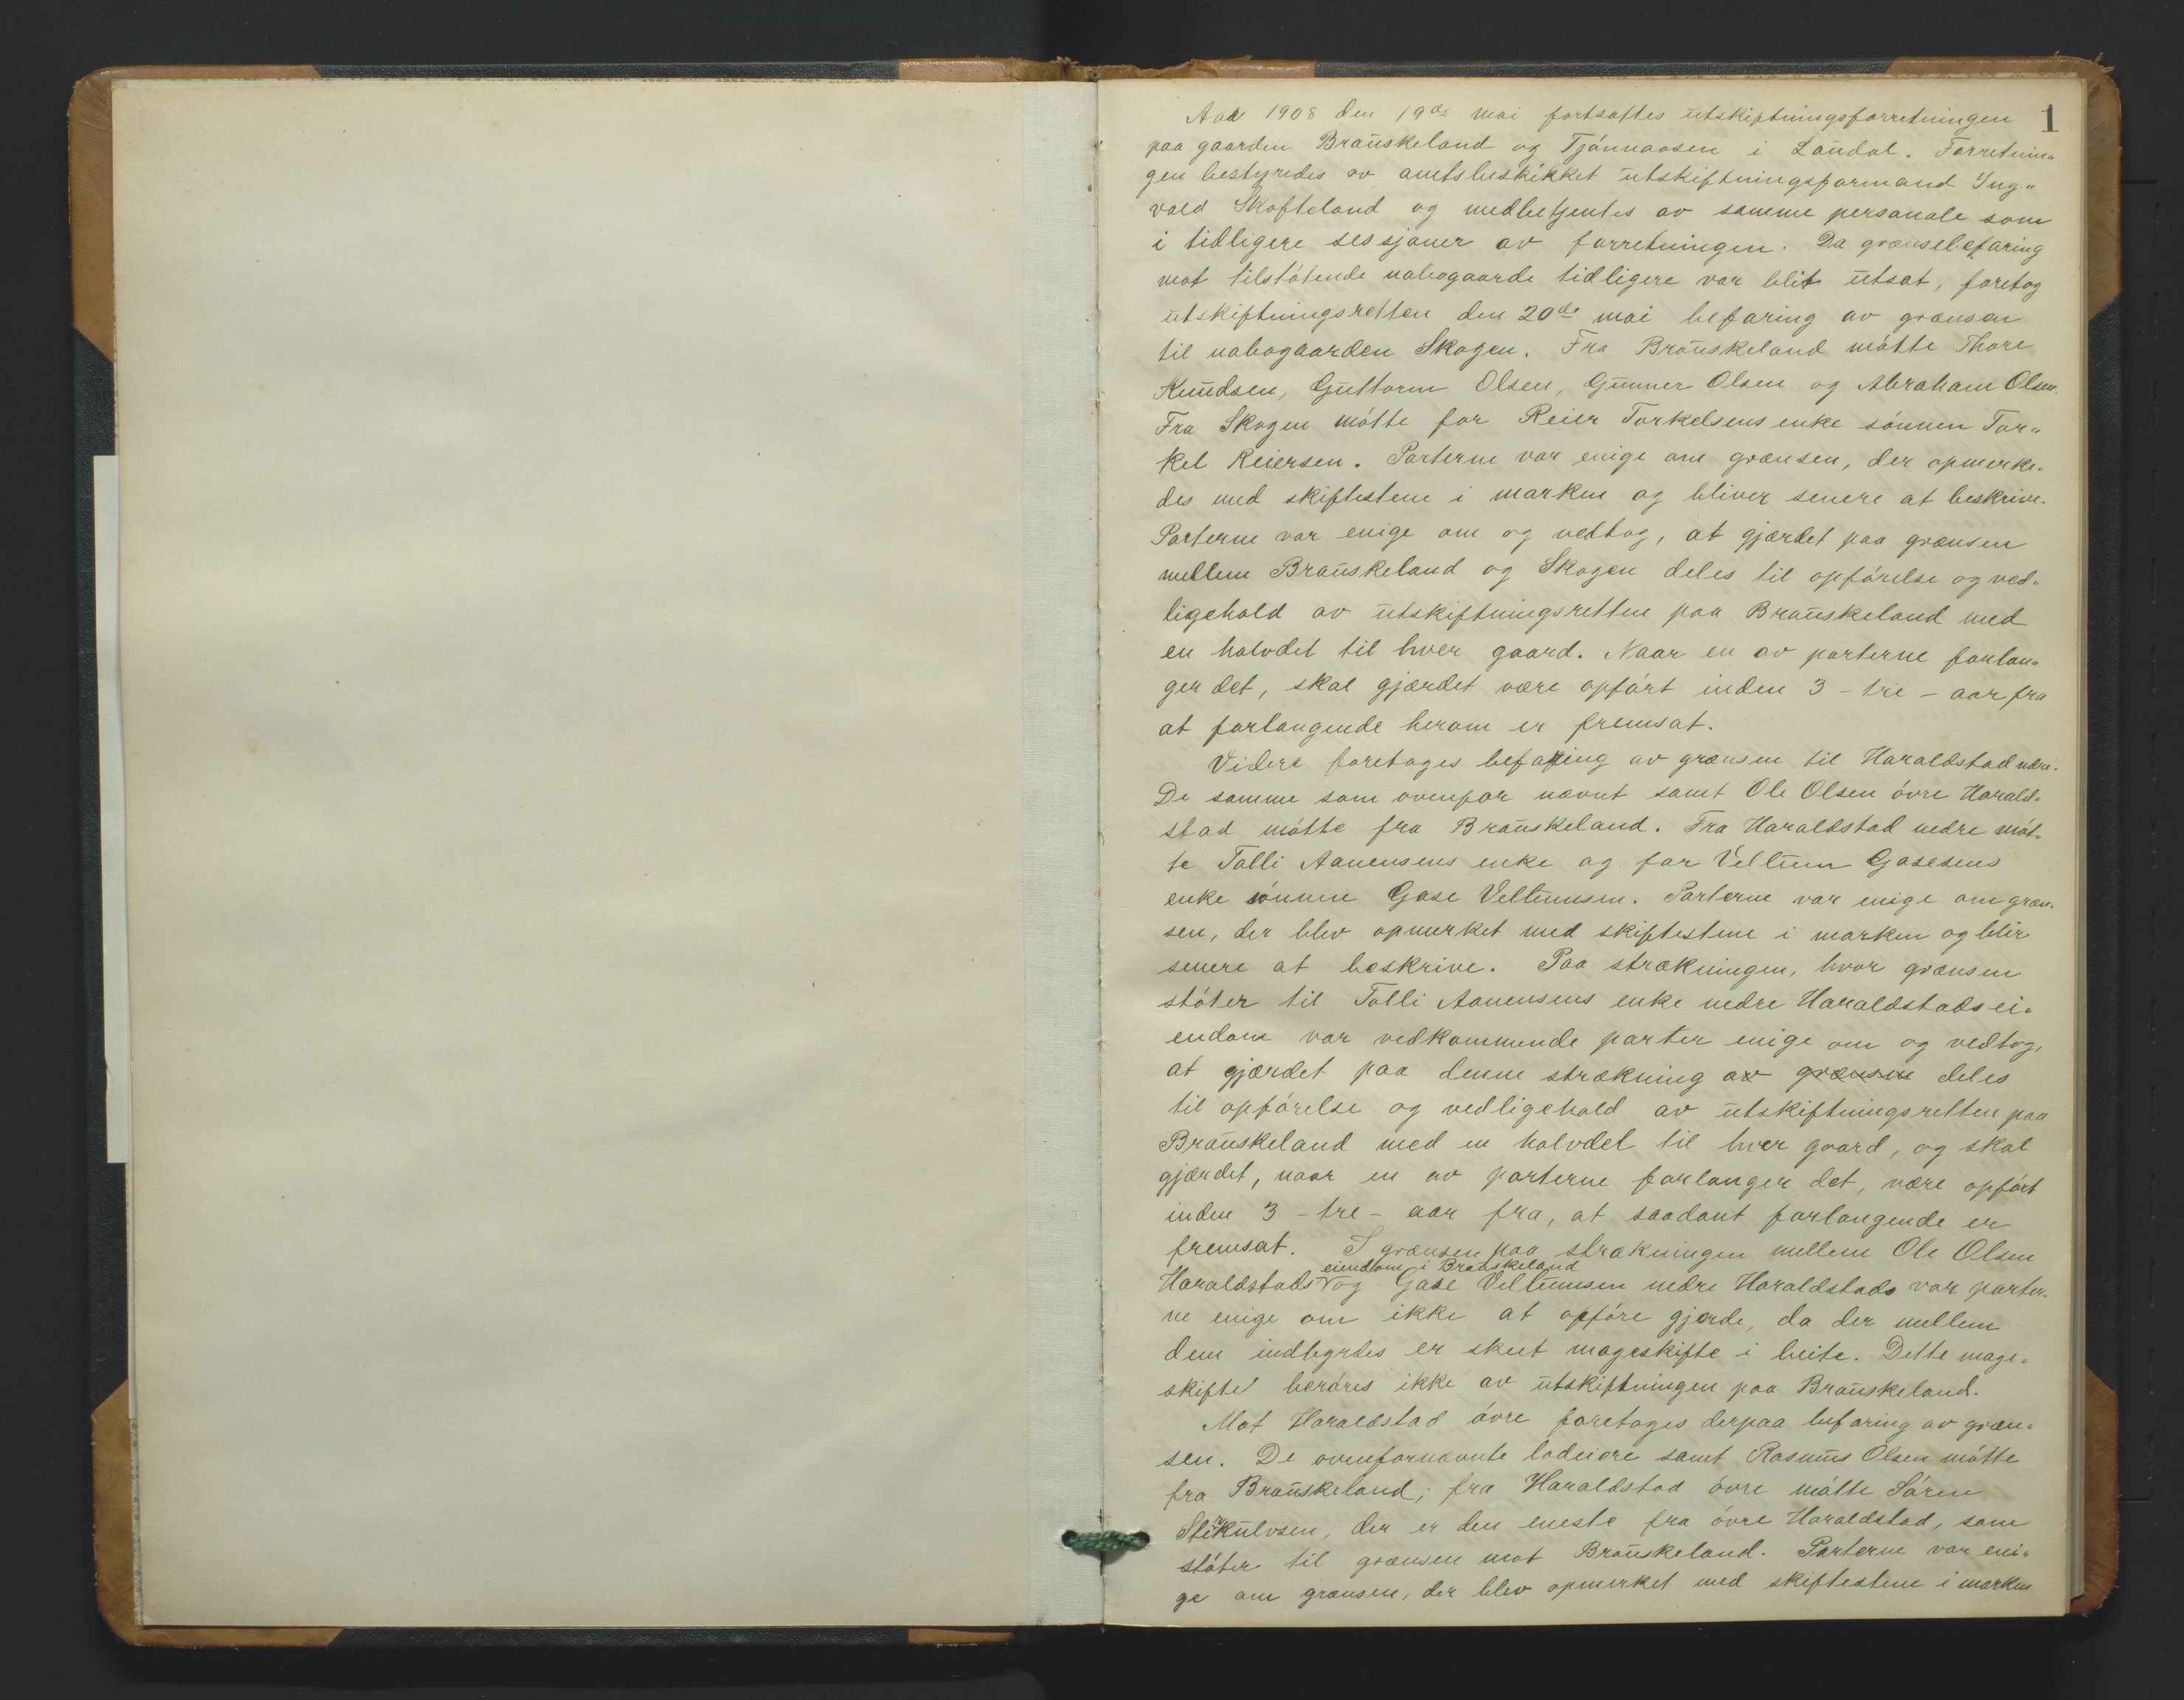 1
Aar 1908 den 19de mai fortsattes utskiftningsforretningen
paa gaarden Brauskeland og Tjönnaasen i Laudal. Forretnin-
gen bestyredes av amtsbeskikket utskiftningsformand Ing-
vald Skofteland og medbetjentes av samme personale som
i tidligere sessjoner av forretningen. Da grænsebefaring
mot tilstötende nabogaarde tidligere var blit utsat, foretog
utskiftningsretten den 20de mai befaring av grænsen
til nabogaarden Skogen. Fra Brauskeland mötte Thore
Knudsen, Guttorm Olsen, Gunner Olsen og Abraham Olsen.
Fra Skogen mötte for Reier Torkelsens enke sönnen Tor-
kel Reiersen. Parterne var enige om grænsen, der opmerke-
des med skiftestene i marken og bliver senere at beskrive.
Parterne var enige om og vedtog, at gjærdet paa grænsen
mellem Brauskeland og Skogen deles til opförelse og ved-
ligehold av utskiftningsretten paa Brauskeland med
en halvdel til hver gaard. Naar en av parterne forlan-
ger det, skal gjærdet være opfört inden 3 - tre - aar fra
at forlangende herom er fremsat.
Videre foretoges befaring av grænsen til Haraldstad nedre.
De samme som ovenfor nævnt samt Ole Olsen övre Harald-
stad mötte fra Brauskeland. Fra Haraldstad nedre möt-
te Talli Aanensens enke og for Veltum Gasesens
enke sönnen Gase Veltumsen. Parterne var enige om græn-
sen, der blev opmerket med skiftestene i marken og blir
senere at beskrive. Paa strækningen, hvor grænsen
stöter til Talli Aanensens enke nedre Haraldstads ei-
endom var vedkommende parter enige om og vedtog,
at gjærdet paa denne strækning av grænsen deles
til opförelse og vedligehold av utskiftningsretten paa
Brauskeland med en halvdel til hver gaard, og skal
gjærdet, naar en av parterne forlanger det, være opfört
inden 3 - tre - aar fra, at saadant forlangende er
fremsat. I grænsen paa strækningen mellem Ole Olsen
eiendom i Brauskeland
Haraldstads og Gase Veltumsen nedre Haraldstads var parter-
ne enige om ikke at opföre gjærde, da der mellem
dem indbyrdes er skeet mageskifte i beite. Dette mage-
skifte beröres ikke av utskiftningen paa Brauskeland.
Mot Haraldstad övre foretoges derpaa befaring av græn-
sen. De ovenfornævnte lodeiere samt Rasmus Olsen mötte
fra Brauskeland; fra Haraldstad övre mötte Sören
Sterkulvsen, der er den eneste fra övre Haraldstad, som
stöter til grænsen mot Brauskeland. Parterne var eni-
ge om grænsen, der blev opmerket med skiftestene i marken